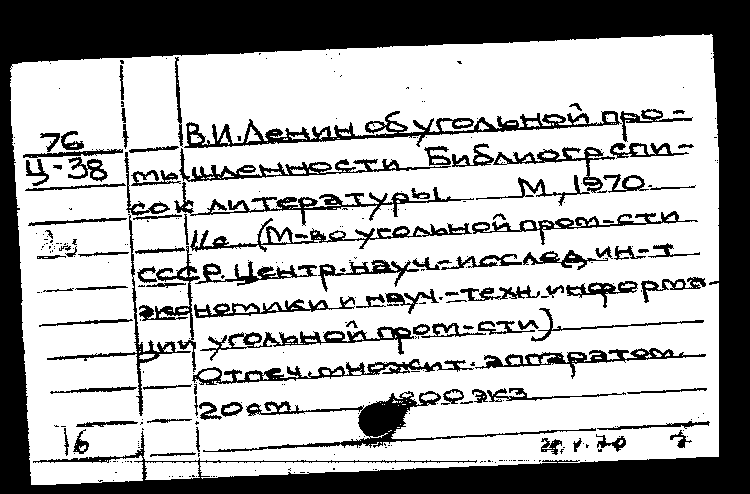 76
Ц-38
В.И.Ленин об угольной про-
мышленности. Библиогр. спи-
сок литературы. М., 1970.
11с. (М-во угольной пром-сти
СССР. Центр. науч.-исслед. ин-т
экономики и науч.-техн. информа-
ции угольной пром-сти).
Отпеч. множит. аппаратом.
20см. 1800 экз.
16